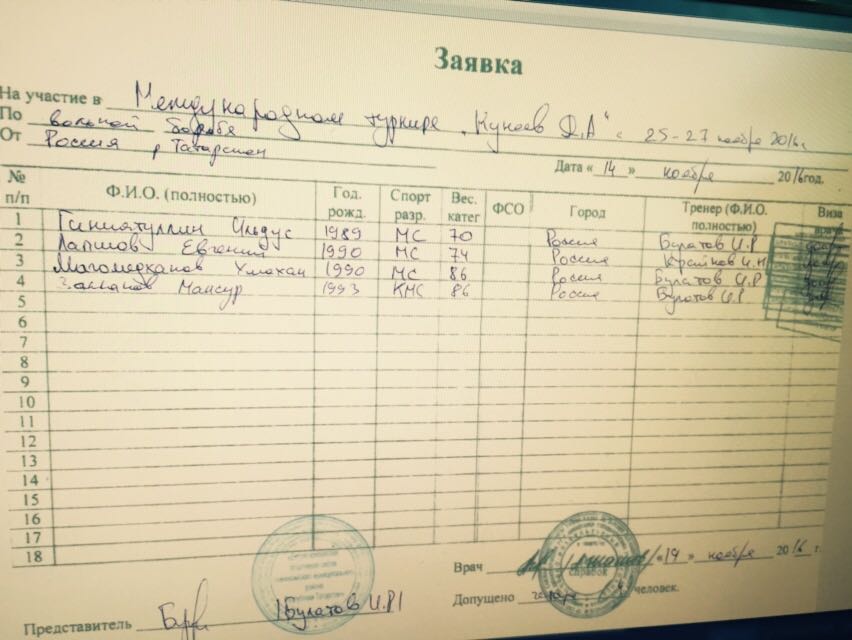 Заявка
На участие в Международном турнире „Кунаев Д.А" с 25-27 ноября 2016г.
По вольной борьбе
От Россия р Татарстан
Дата « 14 » ноября 2016год.
№ п/п Ф.И.О. (полностью) Год. рожд. Спорт разр. Вес. катег ФСО Город Тренер (Ф.И.О. полностью) Виза
1 Гиниатуллин Ильдус 1989 МС 70 Россия Булатов И.Р
2 Лапшов Евгений 1990 МС 74 Россия Крайнов И.Н
3 Магомедханов Умахан 1990 МС 86 Россия Булатов И.Р
4 Мансур 1993 КМС 86 Россия Булатов И.Р
5
6
7
8
9
10
11
12
13
14
15
16
17
18
Врач «14» ноября 2016 г.
Допущено человек.
Представитель Булатов И.Р